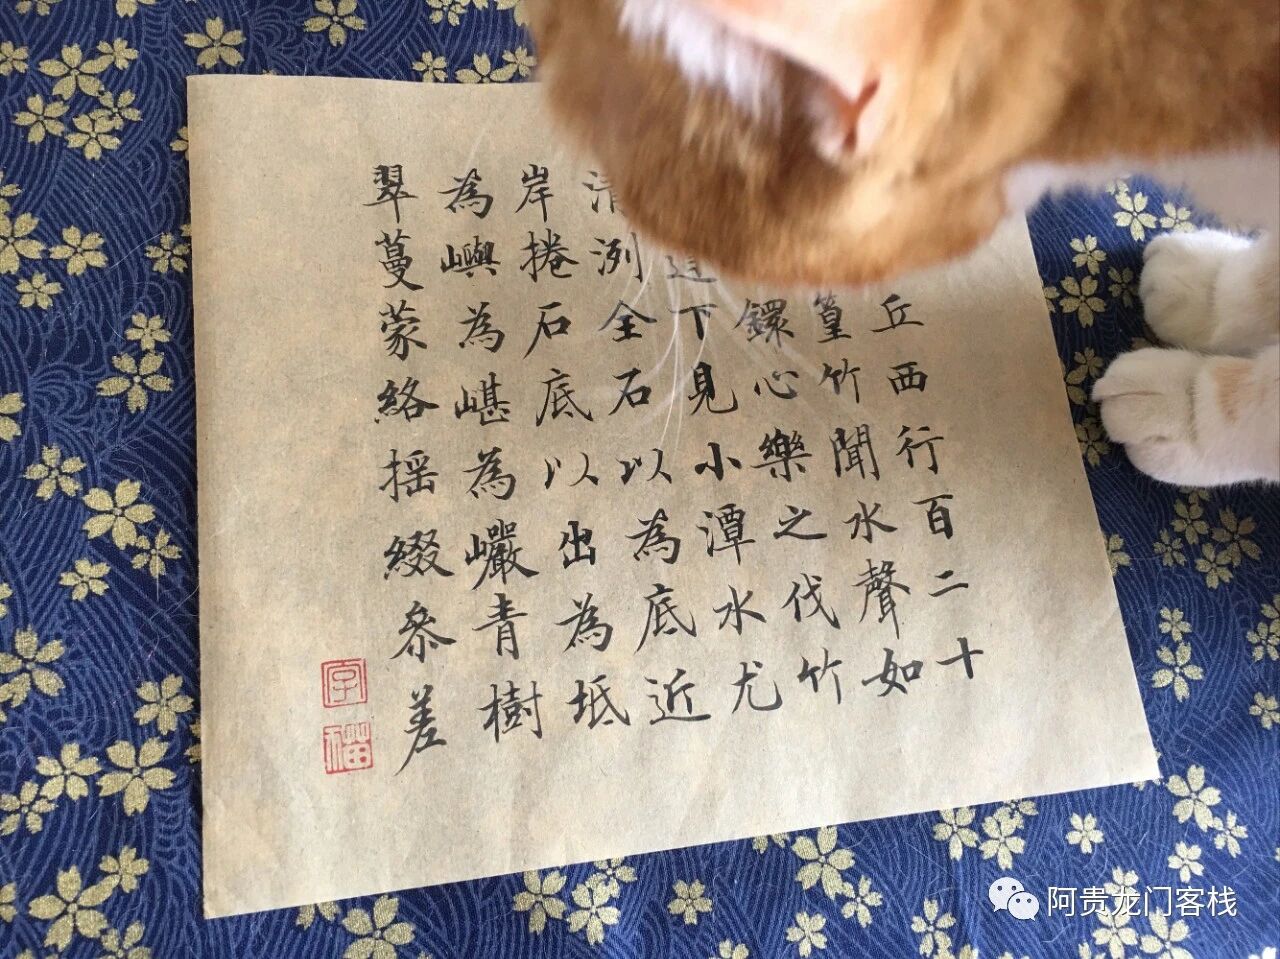 丘西行百二十
篁竹聞水聲如
鐶心樂之伐竹
道下見小潭水尤
清洌全石以為底近
岸捲石底以出為坻
為嶼為嵁為巖青樹
翠蔓蒙絡揺綴參差
阿贵龙门客栈